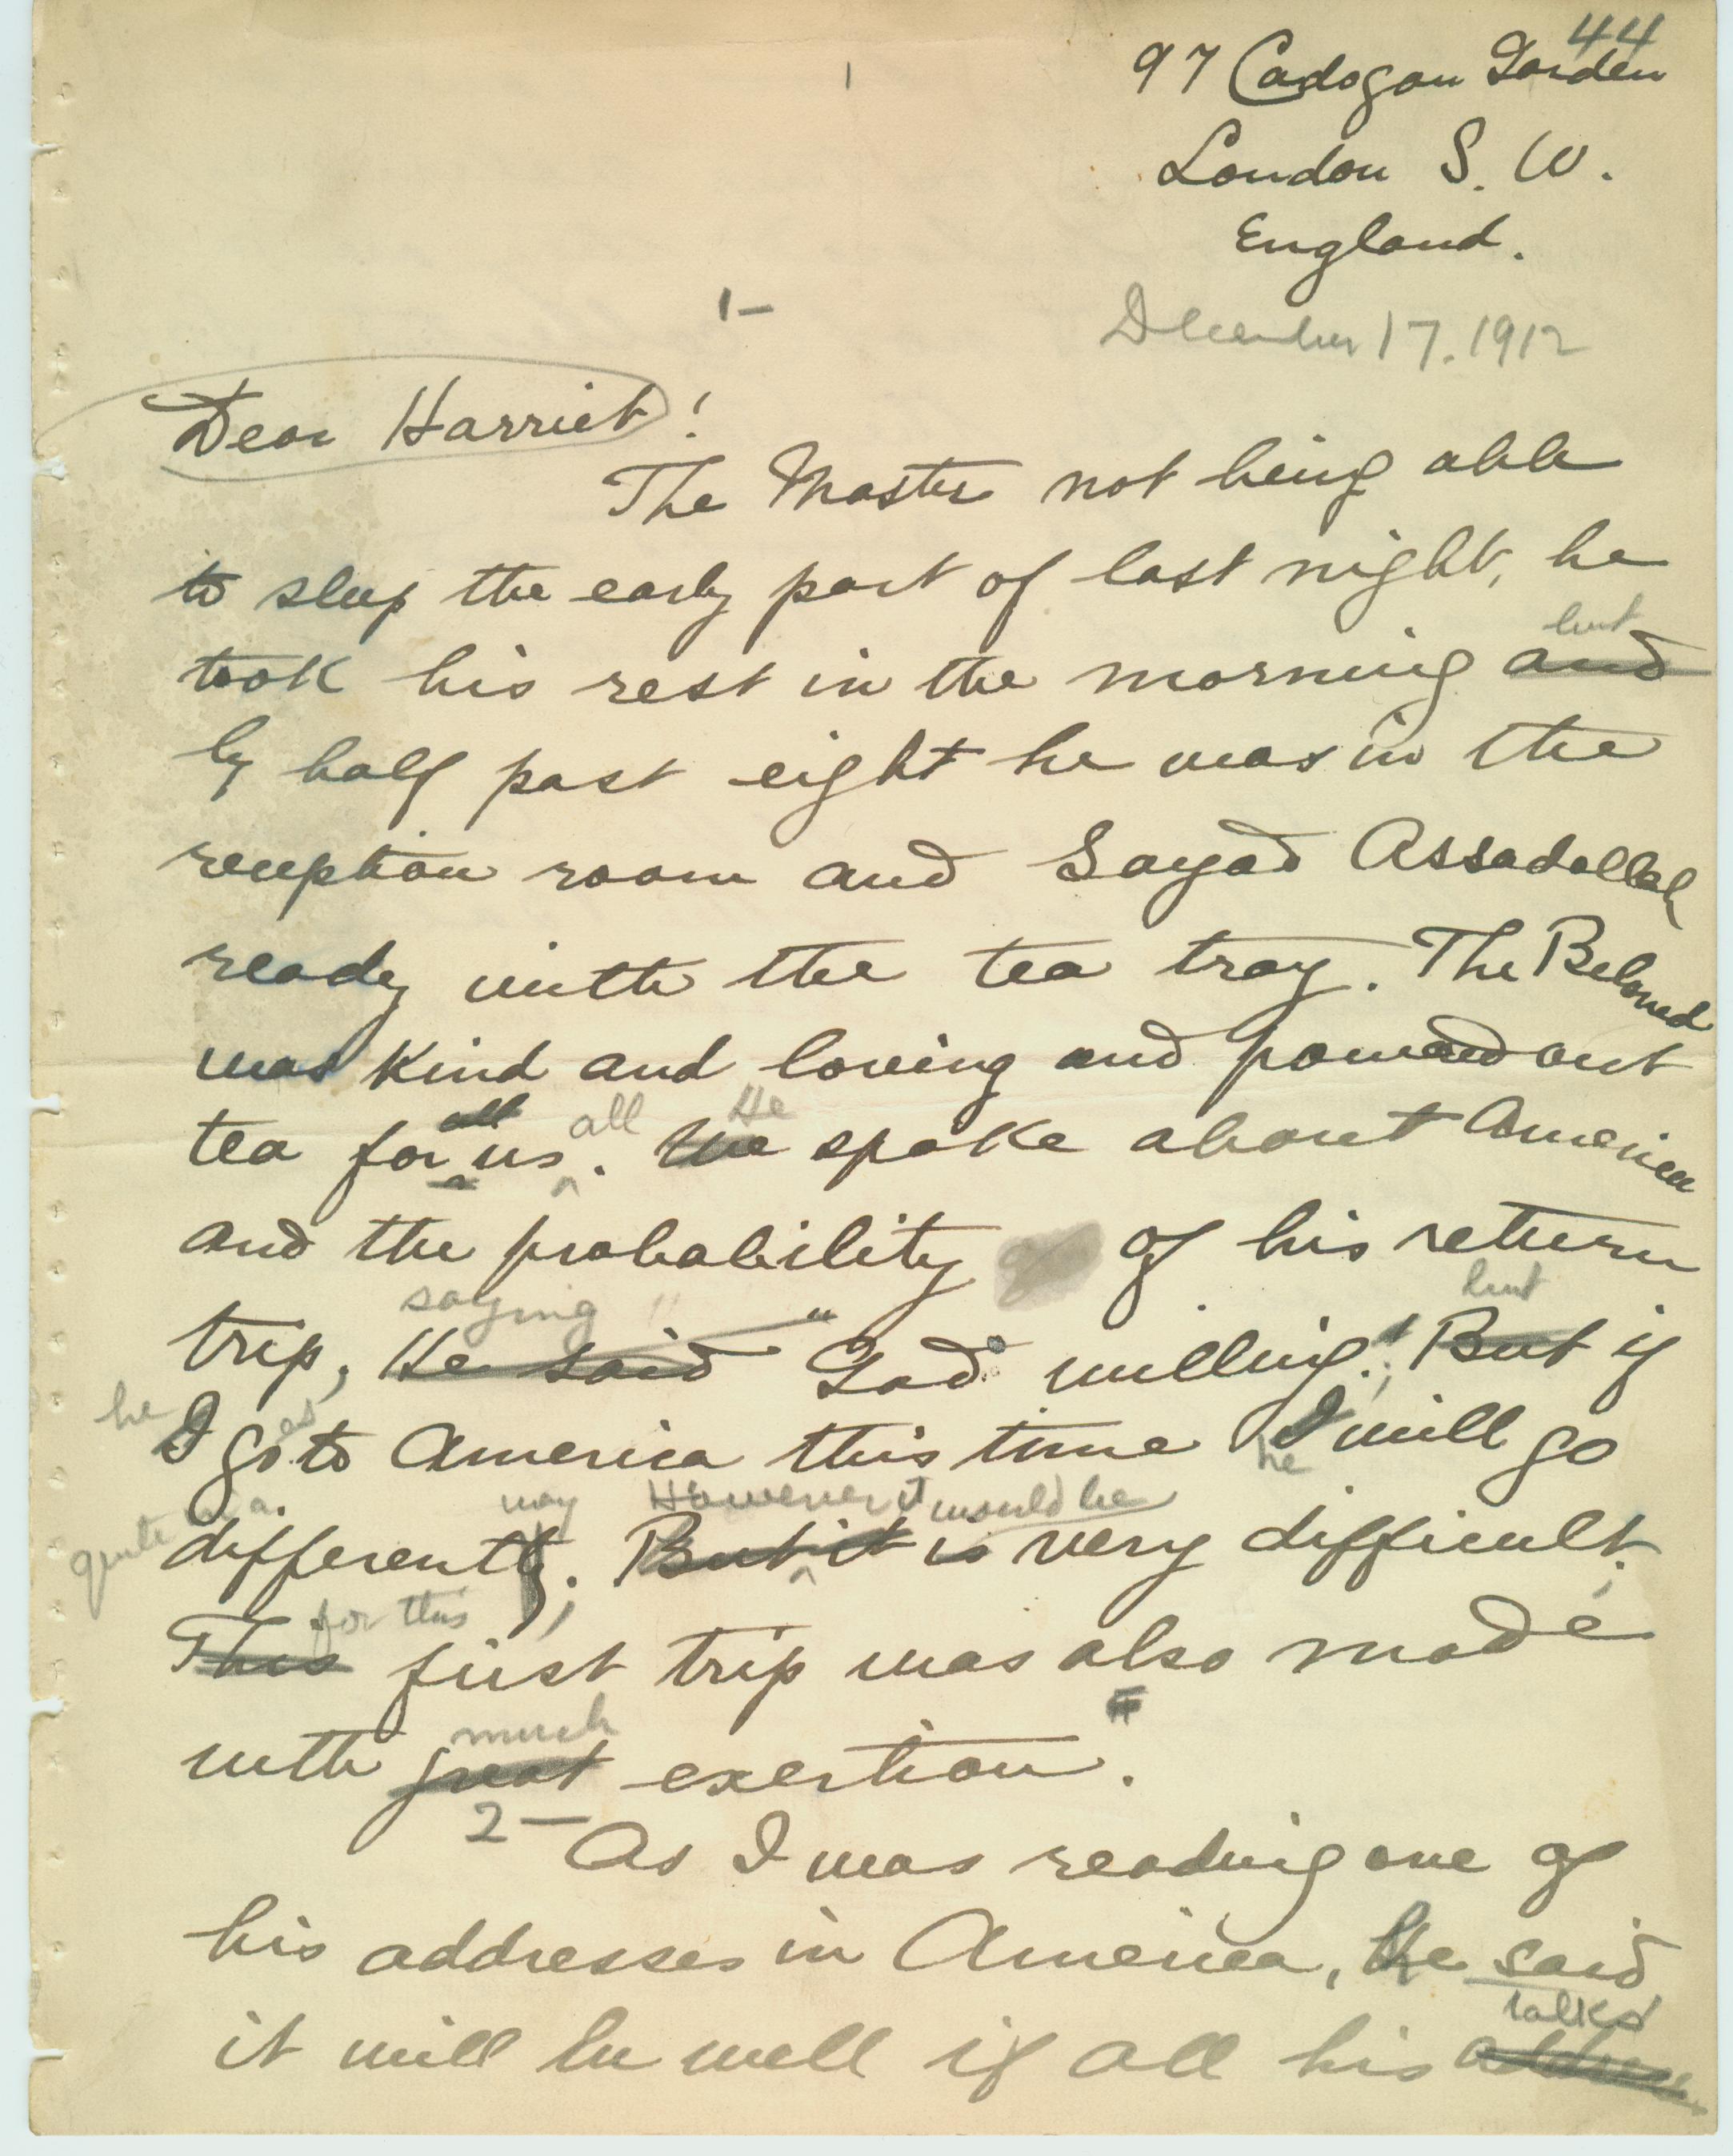 44
97 Cadogan Garden
London S. W.
England.
1-
December 17. 1912
Dear Harriet!
The Master not being able
to sleep the early part of last night, he
but
took his rest in the morning and
by half past eight he was in the
reception room and Sayad Assadollah
ready with the tea tray. The Beloved
was kind and loving and poured out
all all He
tea for us. We spoke about America
and the probability of his return
saying but
trip, He said "God willing". But if
he
I go to America this time I will go
he
quite may However it would be
differently. But it is very difficult.
for this
This first trip was also made
much
with great exertion."
2- As I was reading one of
his addresses in America, he said
talks
it will be well if all his address